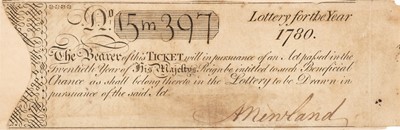 No. 15m397
Lottery for the Year
1780.
The Bearer of this TICKET will in pursuance of an Act passed in the
Twentieth Year of His Majestys Reign be intitled to such Beneficial
Chance as shall belong thereto in the Lottery to be Drawn in
pursuance of the said Act.
A Newland